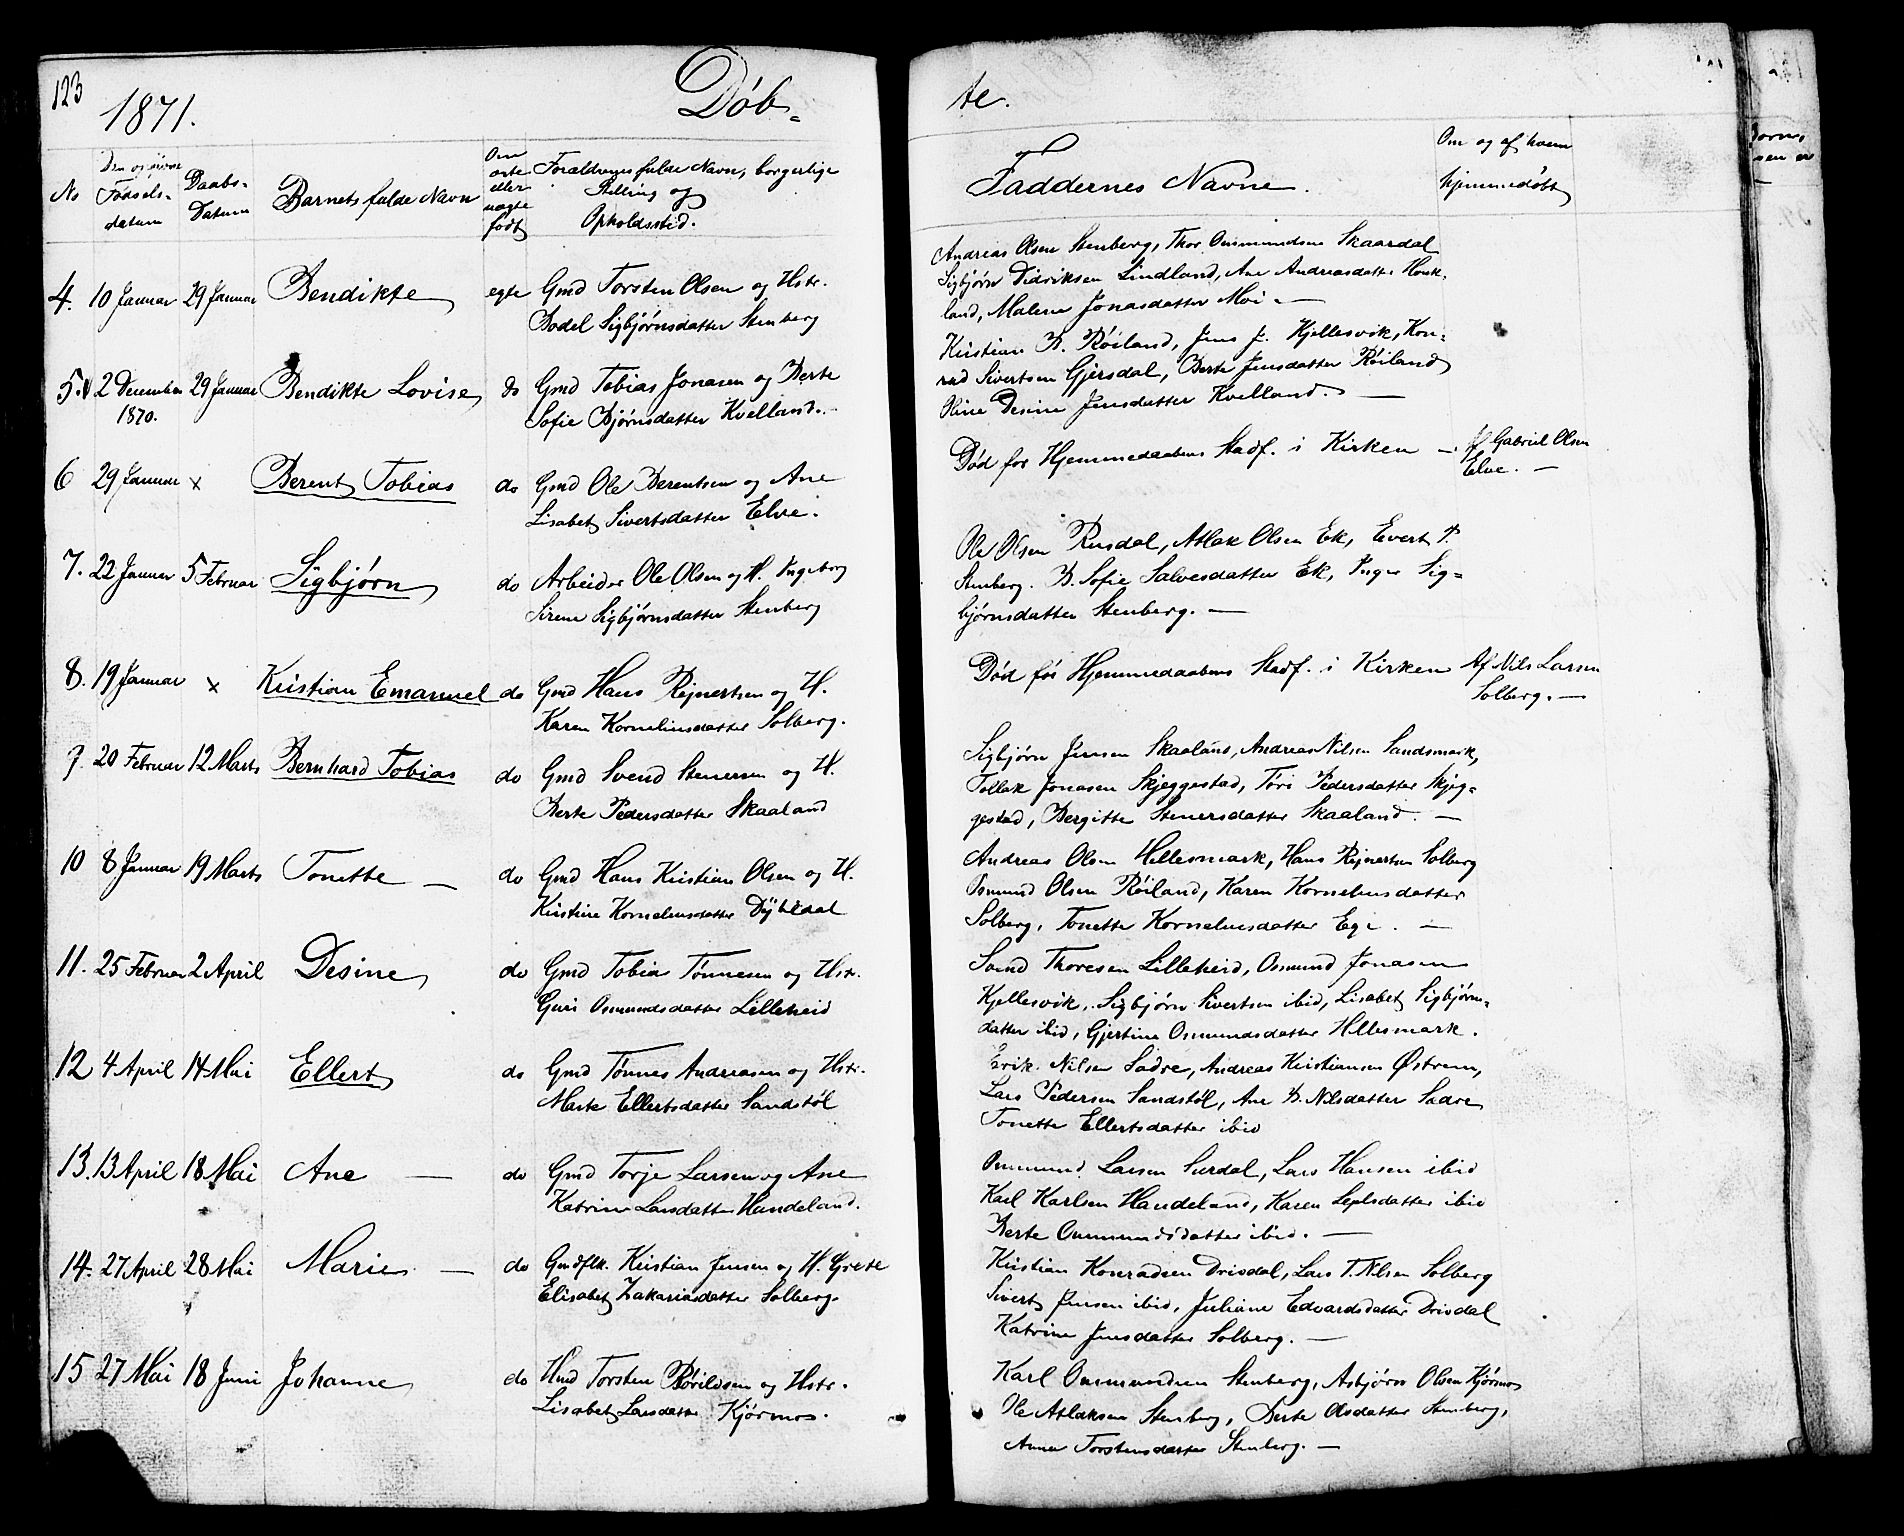 123
1871.
Døb-
te.
No
Den opgivne
Fødsels-
datum
Daabs-
Datum
Barnets fulde Navn
Om
ægte
eller
uægte
født
Forældrenes fulde Navn, borgerlige
Stilling og
Opholdssted.
Faddernes Navne.
Om og af hvem
hjemmedøbt
4. 10 Januar 29 Januar Bendikte egte Gmd Torsten Olsen og Hstr.
Bodel Sigbjørnsdatter Stenberg
Andreas Olsen Stenberg, Thor Omundsen Skaardal
Sigbjørn Didriksen Lindland, Ane Andreasdatter Houk-
land, Malene Jonasdatter Moi. —
5. 2 December 29 Januar Bendikte Lovise do Gmd Tobias Jonasen og Berte
1870. Sofie Bjørnsdatter Kvelland.
Kristian B. Røiland, Jens J. Kjellesvik, Kon-
rad Sivertsen Gjersdal, Berte Jensdatter Røiland
Oline Desine Jensdatter Kvelland. —
6 29 Januar x Berent Tobias do Gmd Ole Berentsen og Ane
Lisabet Sivertsdatter Elve.
Død før Hjemmedaabens Stadf. i Kirken — Af Gabriel Olsen
Elve. —
7. 22 Januar 5 Februar Sigbjørn do Arbeider Ole Olsen og H. Ingeborg
Sirene Sigbjørnsdatter Stenberg
Ole Olsen Rusdal, Atlak Olsen Ek, Evert T.
Stenberg. B. Sofie Salvesdatter Ek, Inger Sig-
bjørnsdatter Stenberg. —
8. 19 Januar x Kristian Emanuel do Gmd Hans Rejnertsen og H.
Karen Korneliusdatter Solberg.
Død før Hjemmedaabens Stadf. i Kirken Af Nils Larsen
Solberg. —
9. 20 Februar 12 Marts Bernhard Tobias do Gmd Svend Stenersen og H.
Berte Pedersdatter Skaaland
Sigbjørn Jensen Skaaland, Andreas Nilsen Sandsmark,
Tollak Jonasen Skjeggestad, Tøri Pedersdatter Skjeg-
gestad, Bergitte Stenersdatter Skaaland. —
10 8 Januar 19 Marts Tonette — do Gmd Hans Kristian Olsen og H.
Kirstine Korneliusdatter Dybedal
Andreas Olsen Hellesmark, Hans Rejnertsen Solberg
Osmund Olsen Røiland, Karen Korneliusdatter
Solberg, Tonette Korneliusdatter Ege. —
11. 25 Februar 2 April Desine do Gmd Tobias Tønnesen og Hstr.
Guri Osmundsdatter Lilleheid
Svend Thoresen Lilleheid, Osmund Jonasen
Kjellesvik, Sigbjørn Sivertsen ibid, Lisabet Sigbjørns-
datter ibid, Gjertine Osmundsdatter Hellesmark.
12 4 April 14 Mai Ellert do Gmd Tønnes Andreasen og Hstr.
Marte Ellertsdatter Sandstøl
Erik Nilsen Sadre, Andreas Kristiansen Østrem,
Lars Pedersen Sandstøl, Ane B. Nilsdatter Sadre
Tonette Ellertsdatter ibid
13. 13 April 18 Mai Ane — do Gmd Torje Larsen og Ane
Katrine Larsdatter Handeland.
Ommund Larsen Surdal, Lars Hansen ibid
Karl Karlsen Handeland, Karen datter ibid
Berte Ommundsdatter ibid. —
14. 27 April 28 Mai Marie — do Gmdflk. Kristian Jensen og H. Grete
Elisabet Zakariasdatter Solberg.
Kristian Konradsen Drivdal, Lars T. Nilsen Solberg
Sivert Jensen ibid, Juliane Edvardsdatter Drivdal
Katrine Jensdatter Solberg. —
15 27 Mai 18 Juni Johanne do Hmd Torsten og Hstr.
Lisabet Larsdatter Kjørmos.
Karl Ommundsen Stenberg, Asbjørn Olsen Kjørmos
Ole Atlaksen Stenberg, Berte Olsdatter Stenberg,
Anna Torstensdatter Stenberg. —